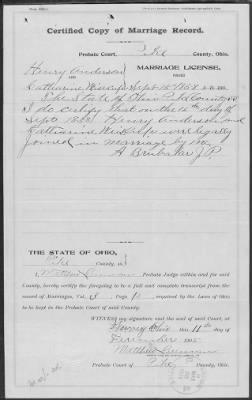 Certified Copy of Marriage Record.
Probate Court, Pike County, Ohio.
Henry Anderson
AND
MARRIAGE LICENSE,
ISSUED
Catharine Sept 15 1868
The State of Ohio Pike County ss
I do certify that on the day of
Sept 1868 Henry Anderson and
Catharine were legally
joined in marriage by me
A Brubaker J P
THE STATE OF OHIO,
Pike County, ss
I, Probate Judge within and for said
County, hereby certify the foregoing to be a full and complete transcript from the
record of Marriages, Vol. 3 Page required by the Laws of Ohio to
be kept in the Probate Court of said County.
WITNESS my signature and the seal of said Court, at
Waverly Ohio this 11th day of
December
Probate Court of Pike County, Ohio.